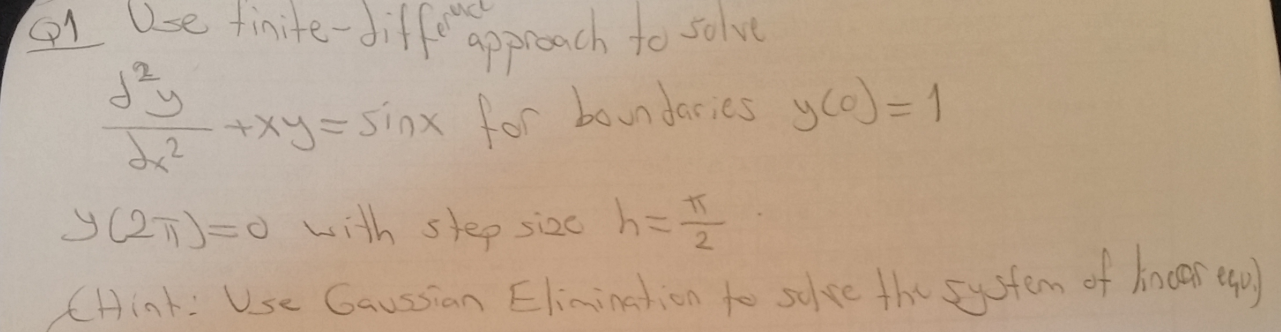 Q1 Use finite-difference approach to solve
d²y/dx² + xy = sinx for boundaries y(0) = 1
y(2π) = 0 with step size h = π/2.
(Hint: Use Gaussian Elimination to solve the system of linear equ.)